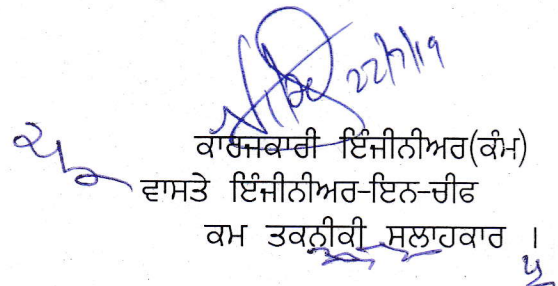 22/7/19
ਕਾਰਜਕਾਰੀ ਇੰਜੀਨੀਅਰ(ਕੰਮ)
ਵਾਸਤੇ ਇੰਜੀਨੀਅਰ-ਇਨ-ਚੀਫ
ਕਮ ਤਕਨੀਕੀ ਸਲਾਹਕਾਰ ।